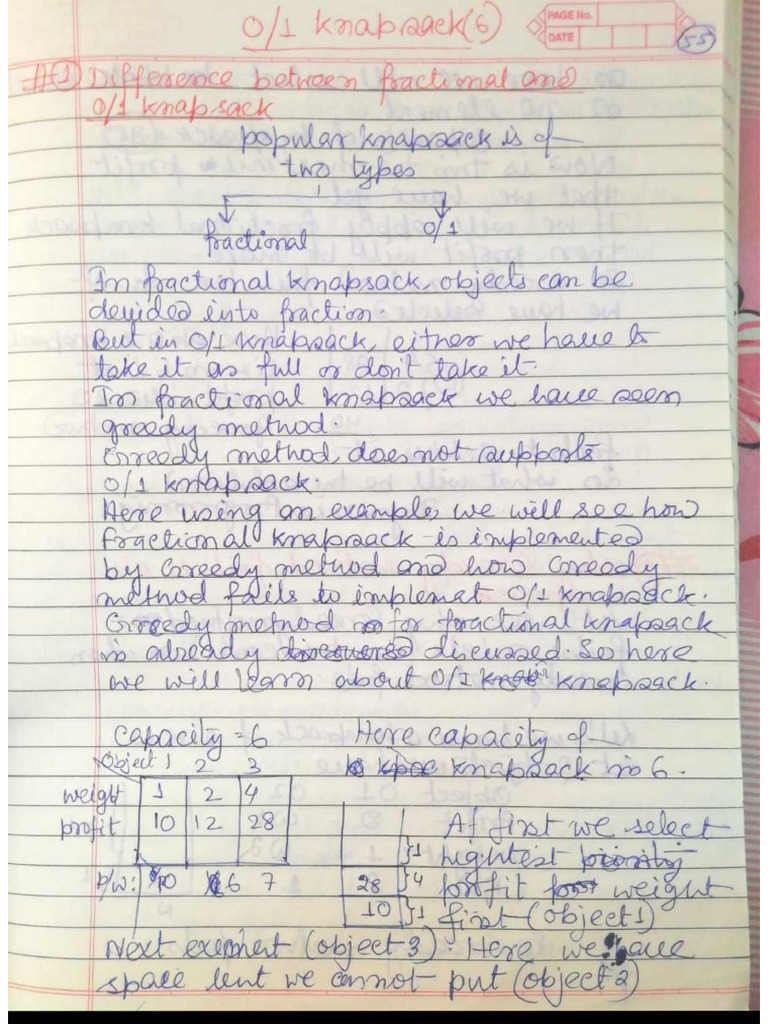 0/1 knapsack(6)
PAGE No.
DATE
55
#① Difference between fractional and
0/1 knapsack
popular knapsack is of
two types
fractional 0/1
In fractional knapsack, objects can be
devided into fraction.
But in 0/1 knapsack, either we have to
take it as full or don't take it.
In fractional knapsack we have seen
greedy method.
Greedy method does not supports
0/1 knapsack.
Here using an example, we will see how
fractional knapsack is implemented
by Greedy method and how Greedy
method fails to implemat 0/1 knapsack.
Greedy method for fractional knapsack
is already discussed. So here
we will learn about 0/1 knapsack.
capacity = 6 Here capacity of
knapsack is 6.
object 1 2 3
weight 1 2 4
profit 10 12 28
p/w: 10 6 7
}1
28 }4
10 }1
At first we select
hightest
profit weight
first (object 1)
Next (object 3) Here we have
space but we cannot put (object 2)